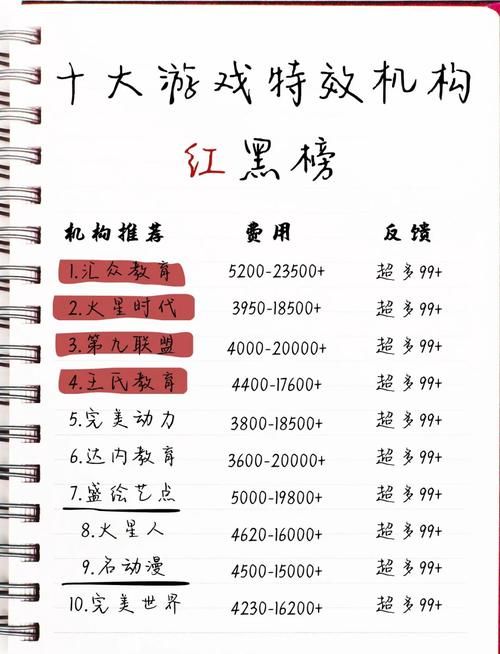 十大游戏特效机构
红黑榜
机构推荐 费用 反馈
1.汇众教育 5200-23500+ 超多99+
2.火星时代 3950-18500+ 超多99+
3.第九联盟 4000-20000+ 超多99+
4.王氏教育 4400-17600+ 超多99+
5.完美动力 3800-18500+ 超多99+
6.达内教育 3600-20000+ 超多99+
7.盛绘艺点 5000-19800+ 超多99+
8.火星人 4620-16000+ 超多99+
9.名动漫 4500-15000+ 超多99+
10.完美世界 4230-16200+ 超多99+